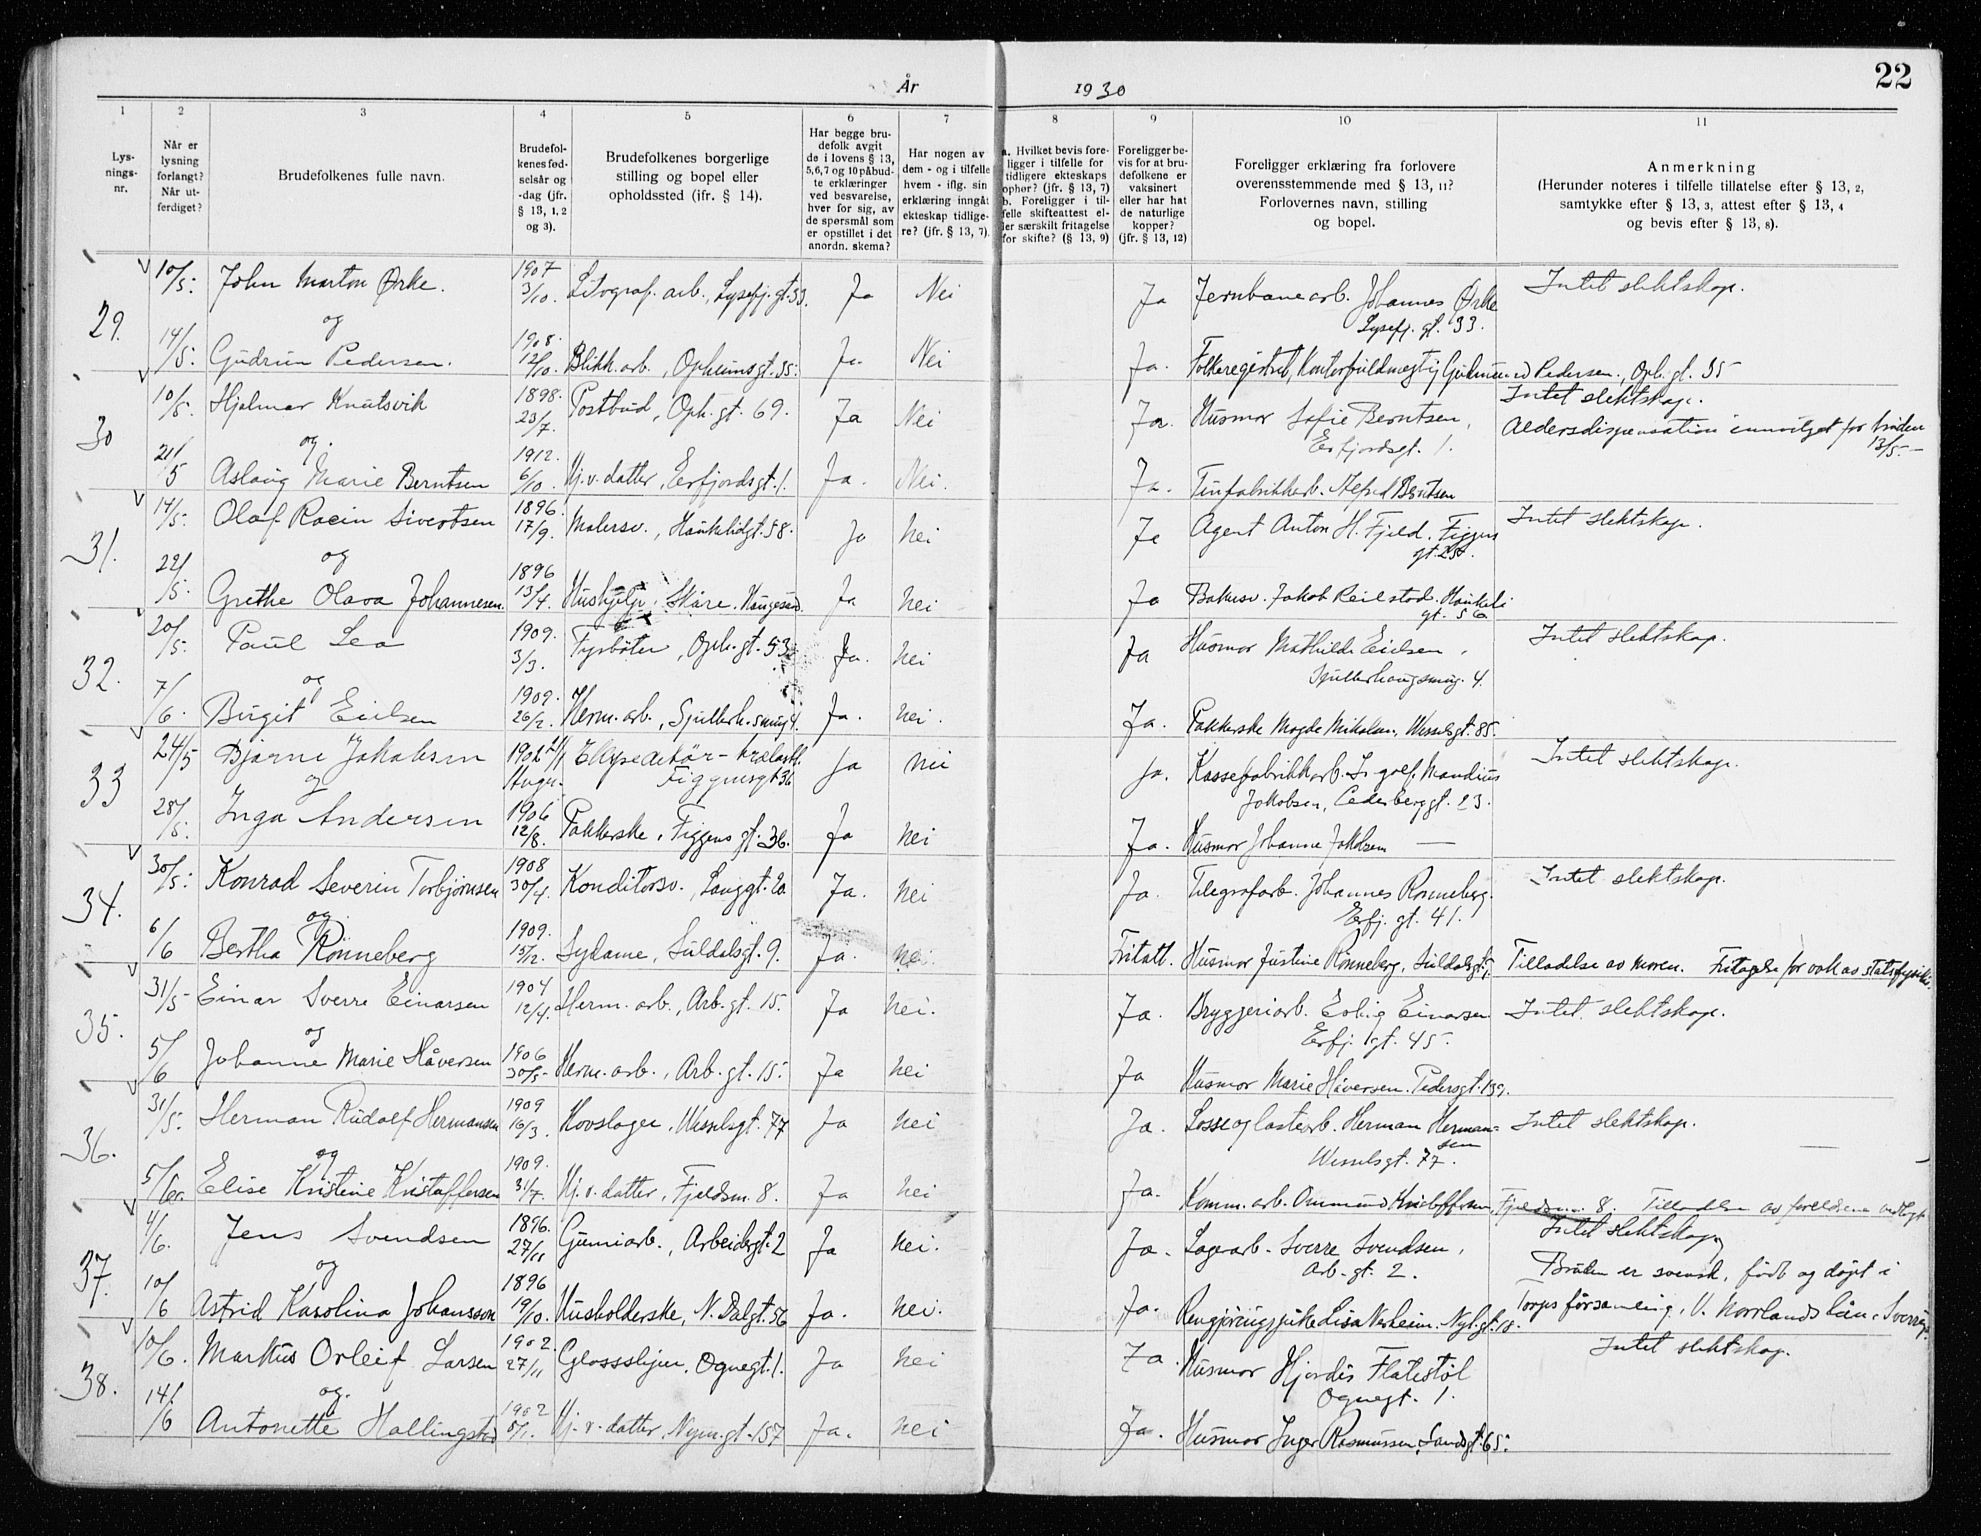 22
År 1930
1 2 3 4 5 6 7 8 9 10 11
Lys-
nings-
nr.
Når er
lysning
forlangt?
Når ut-
ferdiget?
Brudefolkenes fulle navn.
Brudefol-
kenes fød-
selsår og
-dag (jfr.
§ 13, 1, 2
og 3).
Brudefolkenes borgerlige
stilling og bopel eller
opholdssted (ifr. § 14).
Har begge bru-
defolk avgit
de i lovens § 13,
5,6,7 og 10 påbud-
te erklæringer
ved besvarelse,
hver for sig, av
de spørsmål som
er opstillet i det
anordn. skema?
Har nogen av
dem - og i tilfelle
hvem - iflg. sin
erklæring inngåt
ekteskap tidlige-
re? (jfr. § 13, 7).
a. Hvilket bevis fore-
ligger i tilfelle for
tidligere ekteskaps
ophør? (jfr. § 13, 7)
b. Foreligger i til-
felle skifteattest el-
ler særskilt fritagelse
for skifte? (§ 13, 9)
Foreligger be-
vis for at bru-
defolkene er
vaksinert
eller har hat
de naturlige
kopper?
(jfr. § 13, 12)
Foreligger erklæring fra forlovere
overensstemmende med § 13, 11?
Forlovernes navn, stilling
og bopel.
Anmerkning
(Herunder noteres i tilfelle tillatelse efter § 13, 2,
samtykke efter § 13, 3, attest efter § 13, 4
og bevis efter § 13, 8).
29. 10/5. John Marton Ørke. 1907 3/10. Litograf. arb., Lysefj. gt. 33. Ja Nei Ja Jernbanearb. Johannes Ørke Lysefj. gt. 33. Intet slektskap.
og
14/5. Gudrun Pedersen. 1908. 12/10. Blikk. arb., Opheimsgt. 35. Ja. Nei Ja. Folkeregistret, Kontorfuldmegtig Gudmund Pedersen., Oph. gt. 35
30 10/5. Hjalmar Knutsvik 1898. 23/7. Postbud, Oph. gt. 69. Ja Nei Ja. Husmor Sofie Berntsen, Erfjordsgt. 1. Intet slektskap. Aldersdispensation innvilget for bruden 13/5.-
og.
21/5 Aslaug Marie Berntsen 1912. 6/10. Hj. v. datter, Erfjordsgt. 1. Ja. Nei. Ja. Tinfabrikkarb. Alfred Berntsen
31. 14/5. Olaf Racin Sivertsen 1896. 17/9. Malersv., Haukelidgt. 58. Ja Nei Ja Agent Anton H. Fjeld. Figgens gt. Intet slektskap.
og
22/5. Grethe Olava Johannesen. 1896 13/4. Hushjelp. Skåre. Haugesund. Ja Nei Ja Bakersv. Jakob Reilstad. Haukeli gt. 56
32. 20/5. Paul Lea 1909. 3/3. Fyrbøter, Oph. gt. 53. Ja. Nei Ja Husmor Mathilde Eielsen, 4. Intet slektskap.
og
7/6. Birgit Eielsen 1909. 26/2. Herm. arb., 4. Ja. Nei. Ja. Pakkerske Magda Mikalsen, Wesselsgt. 85.
33 24/5 Bjarne Jakobsen 1902 Ekspeditør - Figgensgt 36 Ja Nei Ja. Kassefabrikkarb. Mandius Jakobsen, Cederberggt. 23. Intet slektskap.
og
28/5. Inga Andersen 1906 12/8. Pakkerske, Figgens gt. 36. Ja Nei Ja. Husmor Johanne Jakobsen —
34. 30/5. Konrad Severin Torbjørnsen 1908 30/4. Konditorsv., Langgt. 20 Ja. Nei Ja. Telegrafarb. Johannes Rønneberg. Erfj. gt. 41. Intet slektskap.
og
6/6 Bertha Rønneberg 1909. 15/12. Sydame, Suldalsgt. 9. Ja. Nei. Fritatt. Husmor Justine Rønneberg, Suldalsgt. Tilladelse av moren. Fritagelse for vak av statsfysik.
35. 31/5 Einar Sverre Einarsen 1904 12/4. Herm. arb., Arb. gt. 15. Ja Nei. Ja. Bryggeriarb. Einarsen Erfj. gt. 45. Intet slektskap.
og
5/6 Johanne Marie Håversen 1906 30/5- Herm. arb., Arb. gt. 15. Ja Nei Ja Husmor Marie Håversen. Pedersgt. 139.
36. 31/5. Herman Rudolf Hermansen 1909 16/3. Hovslager, Wesselsgt. 77 Ja Nei Ja. Losse og lastearb. Herman Herman-sen Wesselsgt. 77. Intet slektskap.
og
5/6. Elise Kristine Kristoffersen 1909. 31/7. Hj. v. datter, Fjeldsm. 8. Ja Nei Ja. Komm. arb. Ommund Kristoffersen, Fjeldsm. 8. Tilladelse av foreldrene vedlagt
37. 4/6. Jens Svendsen 1896. 27/11 Gumiarb., Arbeidergt. 2 Ja Nei. Ja. Lagerarb. Sverre Svendsen, Arb. gt. 2. Intet slektskap. Bruden er svensk, født og døpt i
og
10/6 Astrid Karolina Johansson 1896 19/10. Husholderske, N. Dalgt. 56 Ja. Nei. Ja. Rengjøringspike Lisa Nerheim. Nyl. gt. 18. Torps församling, V. Norrlands län, Sverige
38. 10/6. Markus Orleif Larsen 1902. 27/11 Glassliper, Ognegt. 1. Ja Nei Ja. Husmor Hjørdis Flatestøl Ognegt. 1. Intet slektskap.
og.
14/6 Antonette Hallingstad 1902 5/1. Hj. v. datter, Nym. gt. 157 Ja. Nei Ja. Husmor Inger Rasmussen, Sandsgt. 65.